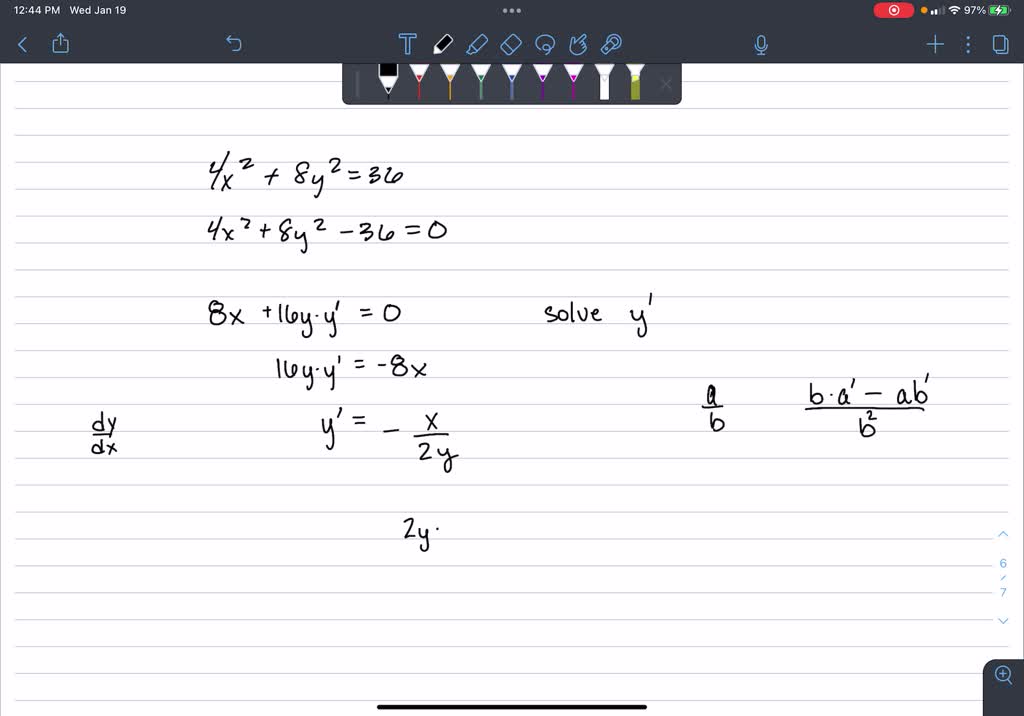 12:44 PM Wed Jan 19
97%
T
4x² + 8y² = 36
4x² + 8y² - 36 = 0
8x + 16y·y' = 0 solve y'
16y·y' = -8x
dy/dx y' = - x/2y a/b b·a' - ab'/b²
2y·
6
7